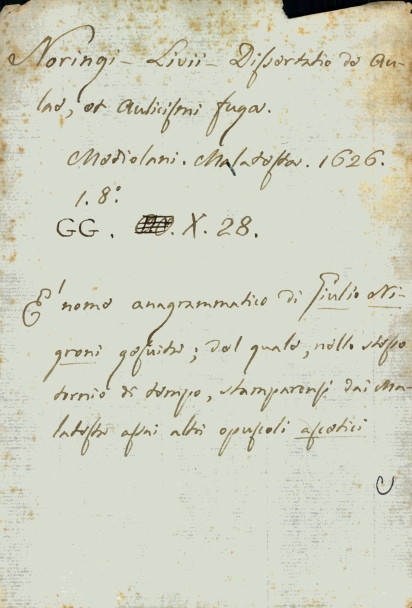 Noringi - Livii - Dissertatio de Au-
lae, et Aulicismi fuga.
Mediolani. Malatesta. 1626.
1. 8.°
GG. X. 28.
E' nome anagrammatico di Giulio Ni-
groni gesuita; del quale, nello stesso
torno di tempo, stamparensi dai Ma-
latesta assai altri opuscoli ascetici